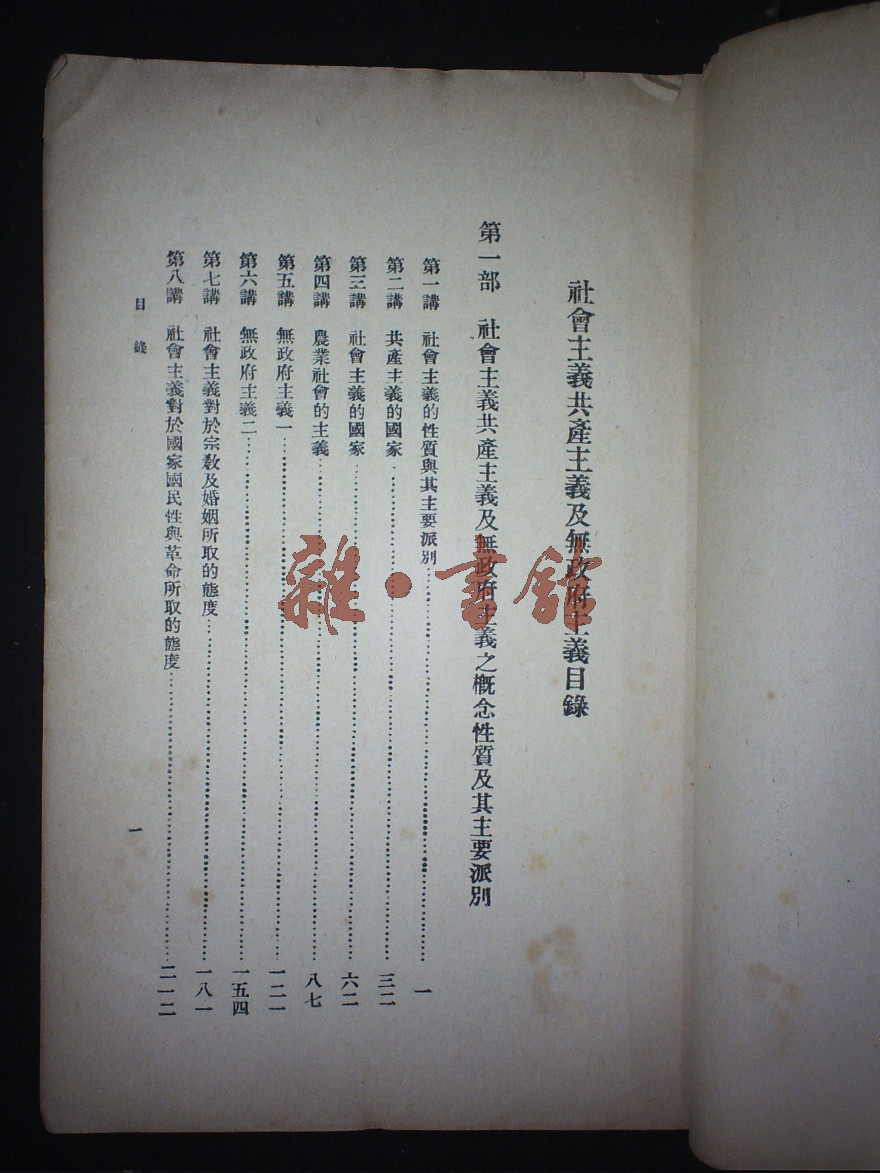 社會主義共產主義及無政府主義目錄
第一部 社會主義共產主義及無政府主義之概念性質及其主要派別
第一講 社會主義的性質與其主要派別 一
第二講 共產主義的國家 三二
第三講 社會主義的國家 六二
第四講 農業社會的主義 八七
第五講 無政府主義一 一二一
第六講 無政府主義二 一五四
第七講 社會主義對於宗教及婚姻所取的態度 一八一
第八講 社會主義對於國家國民性與革命所取的態度 二一二
目錄 一
雜·書館